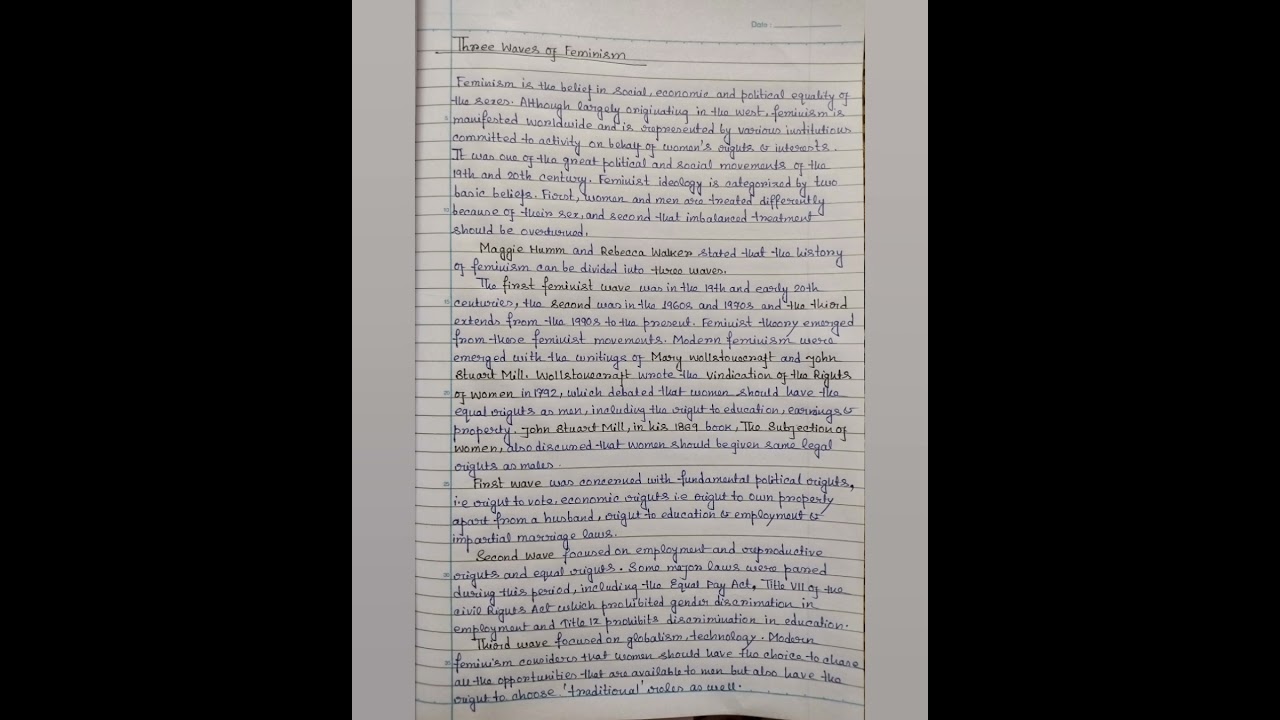 Date :
Three Waves of Feminism
Feminism is the belief in social, economic and political equality of
the sexes. Although largely originating in the west, feminism is
manifested worldwide and is represented by various institutions
committed to activity on behalf of women's rights & interests.
It was one of the great political and social movements of the
19th and 20th century. Feminist ideology is categorized by two
basic beliefs. First, women and men are treated differently
because of their sex, and second that imbalanced treatment
should be overturned.
Maggie Humm and Rebecca Walker stated that the history
of feminism can be divided into three waves.
The first feminist wave was in the 19th and early 20th
centuries, the second was in the 1960s and 1970s and the third
extends from the 1990s to the present. Feminist theory emerged
from these feminist movements. Modern feminism were
emerged with the writings of Mary Wollstonecraft and John
Stuart Mill. Wollstonecraft wrote the Vindication of the Rights
of Women in 1792, which debated that women should have the
equal rights as men, including the right to education, earnings &
property. John Stuart Mill, in his 1869 book, The Subjection of
Women, also discussed that women should be given same legal
rights as males.
First wave was concerned with fundamental political rights,
i.e right to vote, economic rights i.e right to own property
apart from a husband, right to education & employment &
impartial marriage laws.
Second wave focused on employment and reproductive
rights and equal rights. Some major laws were passed
during this period, including the Equal Pay Act, Title VII of the
civil Rights Act which prohibited gender discrimation in
employment and Title 12 prohibits discrimination in education.
Third wave focused on globalism, technology. Modern
feminism considers that women should have the choice to chase
all the opportunities that are available to men but also have the
right to choose 'traditional' roles as well.